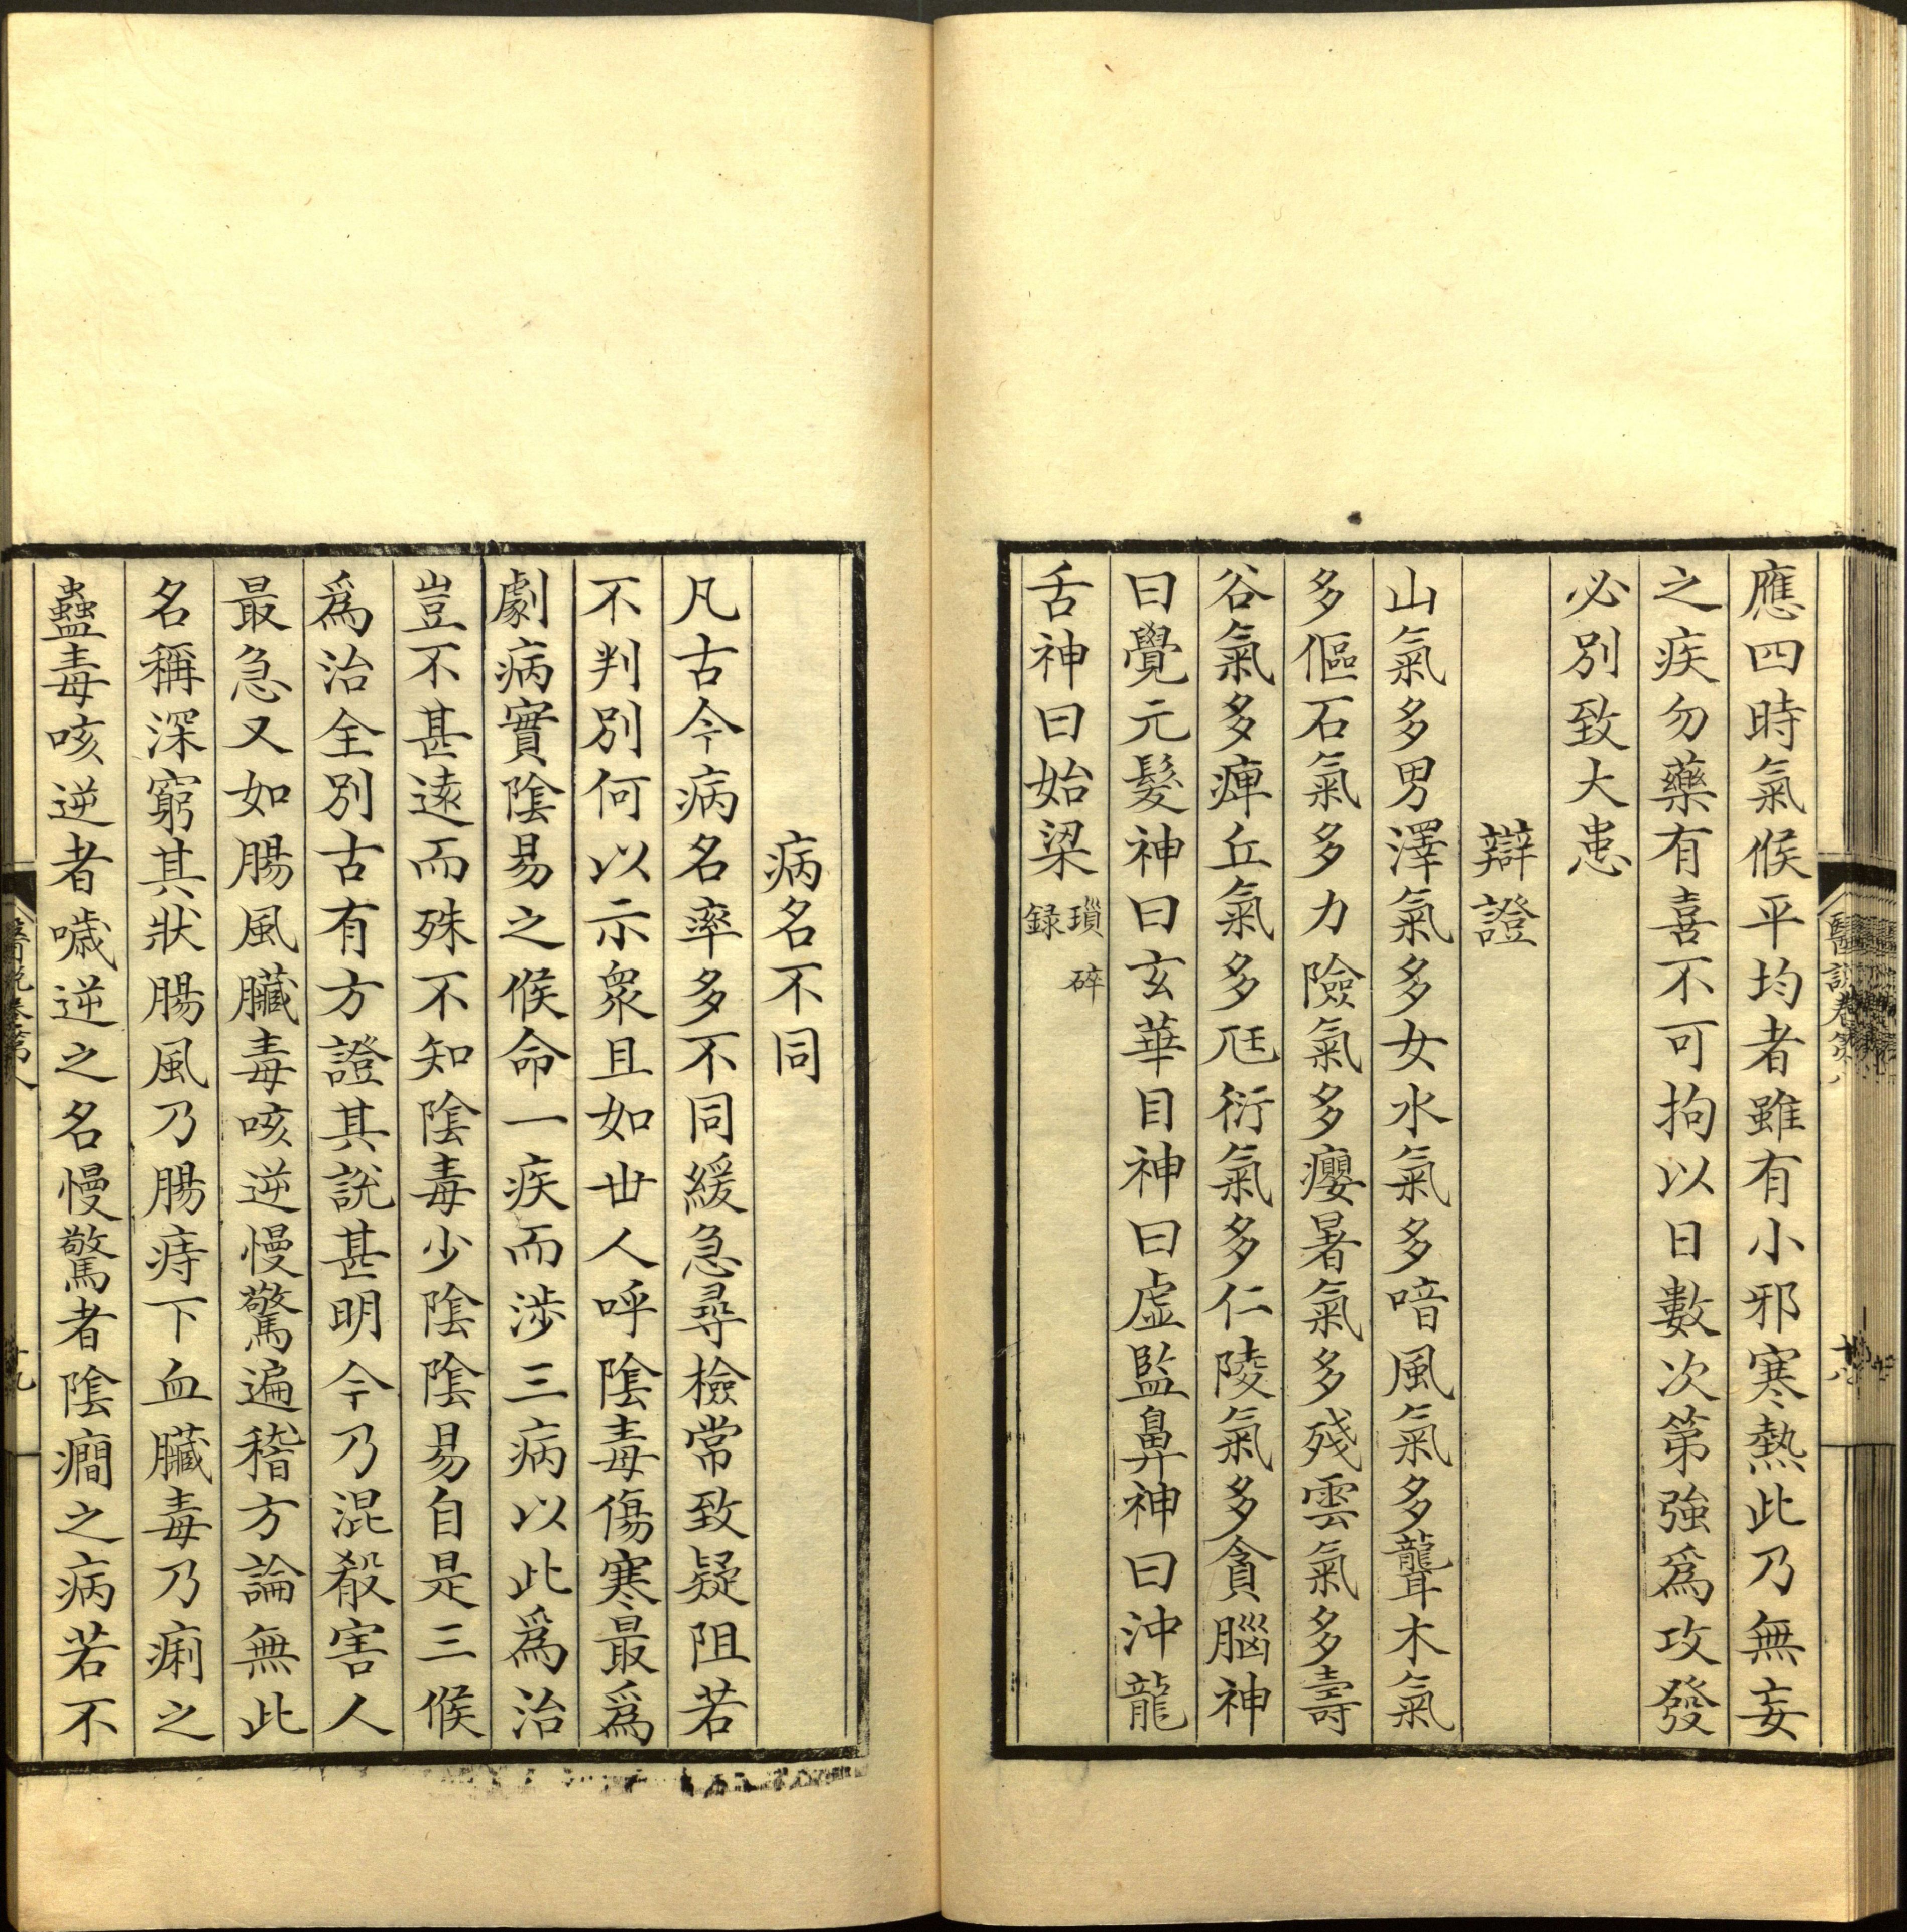 應四時氣候平均者雖有小邪寒熱此乃無妄
之疾勿藥有喜不可拘以日數次第強爲攻發
必別致大患
辯證
山氣多男澤氣多女水氣多喑風氣多聾木氣
多傴石氣多力險氣多癭暑氣多殘雲氣多壽
谷氣多痺丘氣多尫衍氣多仁陵氣多貪腦神
曰覺元髮神曰玄華目神曰虛監鼻神曰沖龍
舌神曰始梁瑣碎
録
醫說卷第八
十八
病名不同
凡古今病名率多不同緩急尋檢常致疑阻若
不判別何以示衆且如世人呼陰毒傷寒最爲
劇病實陰易之候命一疾而涉三病以此爲治
豈不甚遠而殊不知陰毒少陰陰易自是三候
爲治全別古有方證其說甚明今乃混殽害人
最急又如腸風臟毒咳逆慢驚遍稽方論無此
名稱深窮其狀腸風乃腸痔下血臟毒乃痢之
蠱毒咳逆者噦逆之名慢驚者陰癇之病若不
醫說卷第八
十九